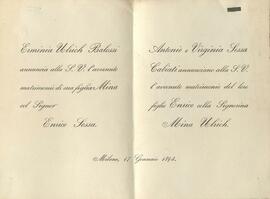 Erminia Ulrich Balossi
annuncia alla S. V. l'avvenuto
matrimonio di sua figlia Mina
col Signor
Enrico Sessa.
Antonio e Virginia Sessa
Cabiati annunziano alla S. V.
l'avvenuto matrimonio del loro
figlio Enrico colla Signorina
Mina Ulrich.
Milano, 17 Gennaio